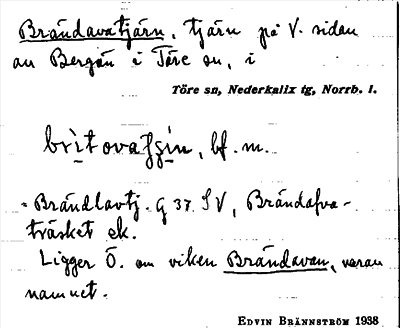 Brändavatjärn, tjärn på V. sidan
av Bergön i Töre sn, i
Töre sn, Nederkalix tg, Norrb. l.
brìtovaʃʃɩn, bf. m.
= Brändlavtj. G 37 SV, Brändafva-
träsket ek.
Ligger Ö. om viken Brändavan, varav
namnet.
EDVIN BRÄNNSTRÖM 1938